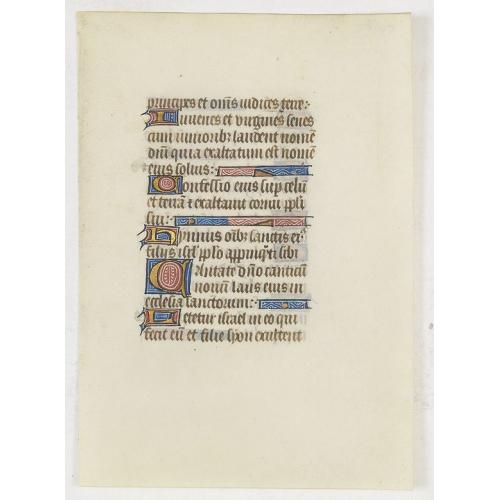 principes et om̄s iudices terre:
Iuuenes et virgines senes
cum iunioribꝫ laudent nomē
dn̄i quia exaltatum est nomē
eius solius:
Confessio eius sup̄ celū
et terrā ⁊ exaltauit cornu pp̄li
sui:
Hymnus oībꝫ sanctis ei᷒
filiis isr̄l pp̄lo appinq̄ti sibi
Cantate dn̄o canticū
nouum laus eius in
ecclesia sanctorum:
Letetur israel in eo qui
fecit eū et filie syon exultent